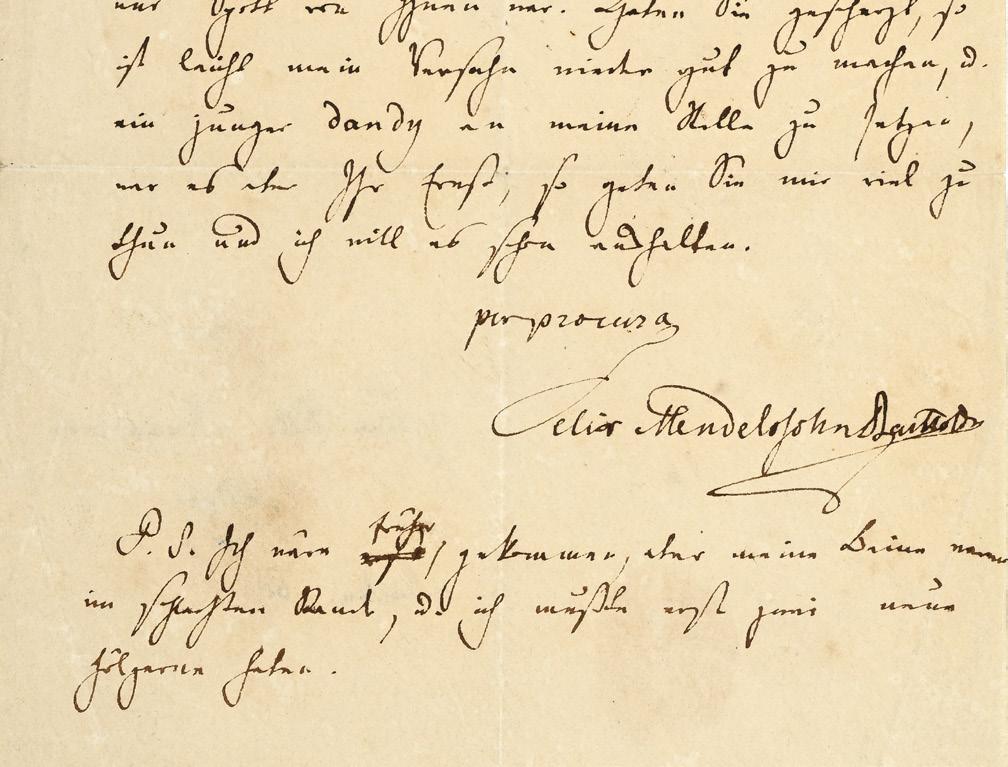 nur Spott von Ihnen war. Haben Sie gescherzt, so
ist leicht mein Versehn wieder gut zu machen, u.
ein junger dandy an meine Stelle zu setzen,
war es aber Ihr Ernst, so geben Sie mir viel zu
thun und ich will es schon aushalten.
per procura
Felix Mendelssohn Bartholdy
P. S. Ich wäre früher gekommen, aber meine Beine waren
im schlechten Stande, u. ich mußte erst zwei neue
hölzerne haben.